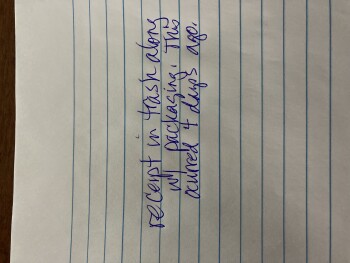 receipt in trash along
w/ packaging. This
ocurred 4 days ago.